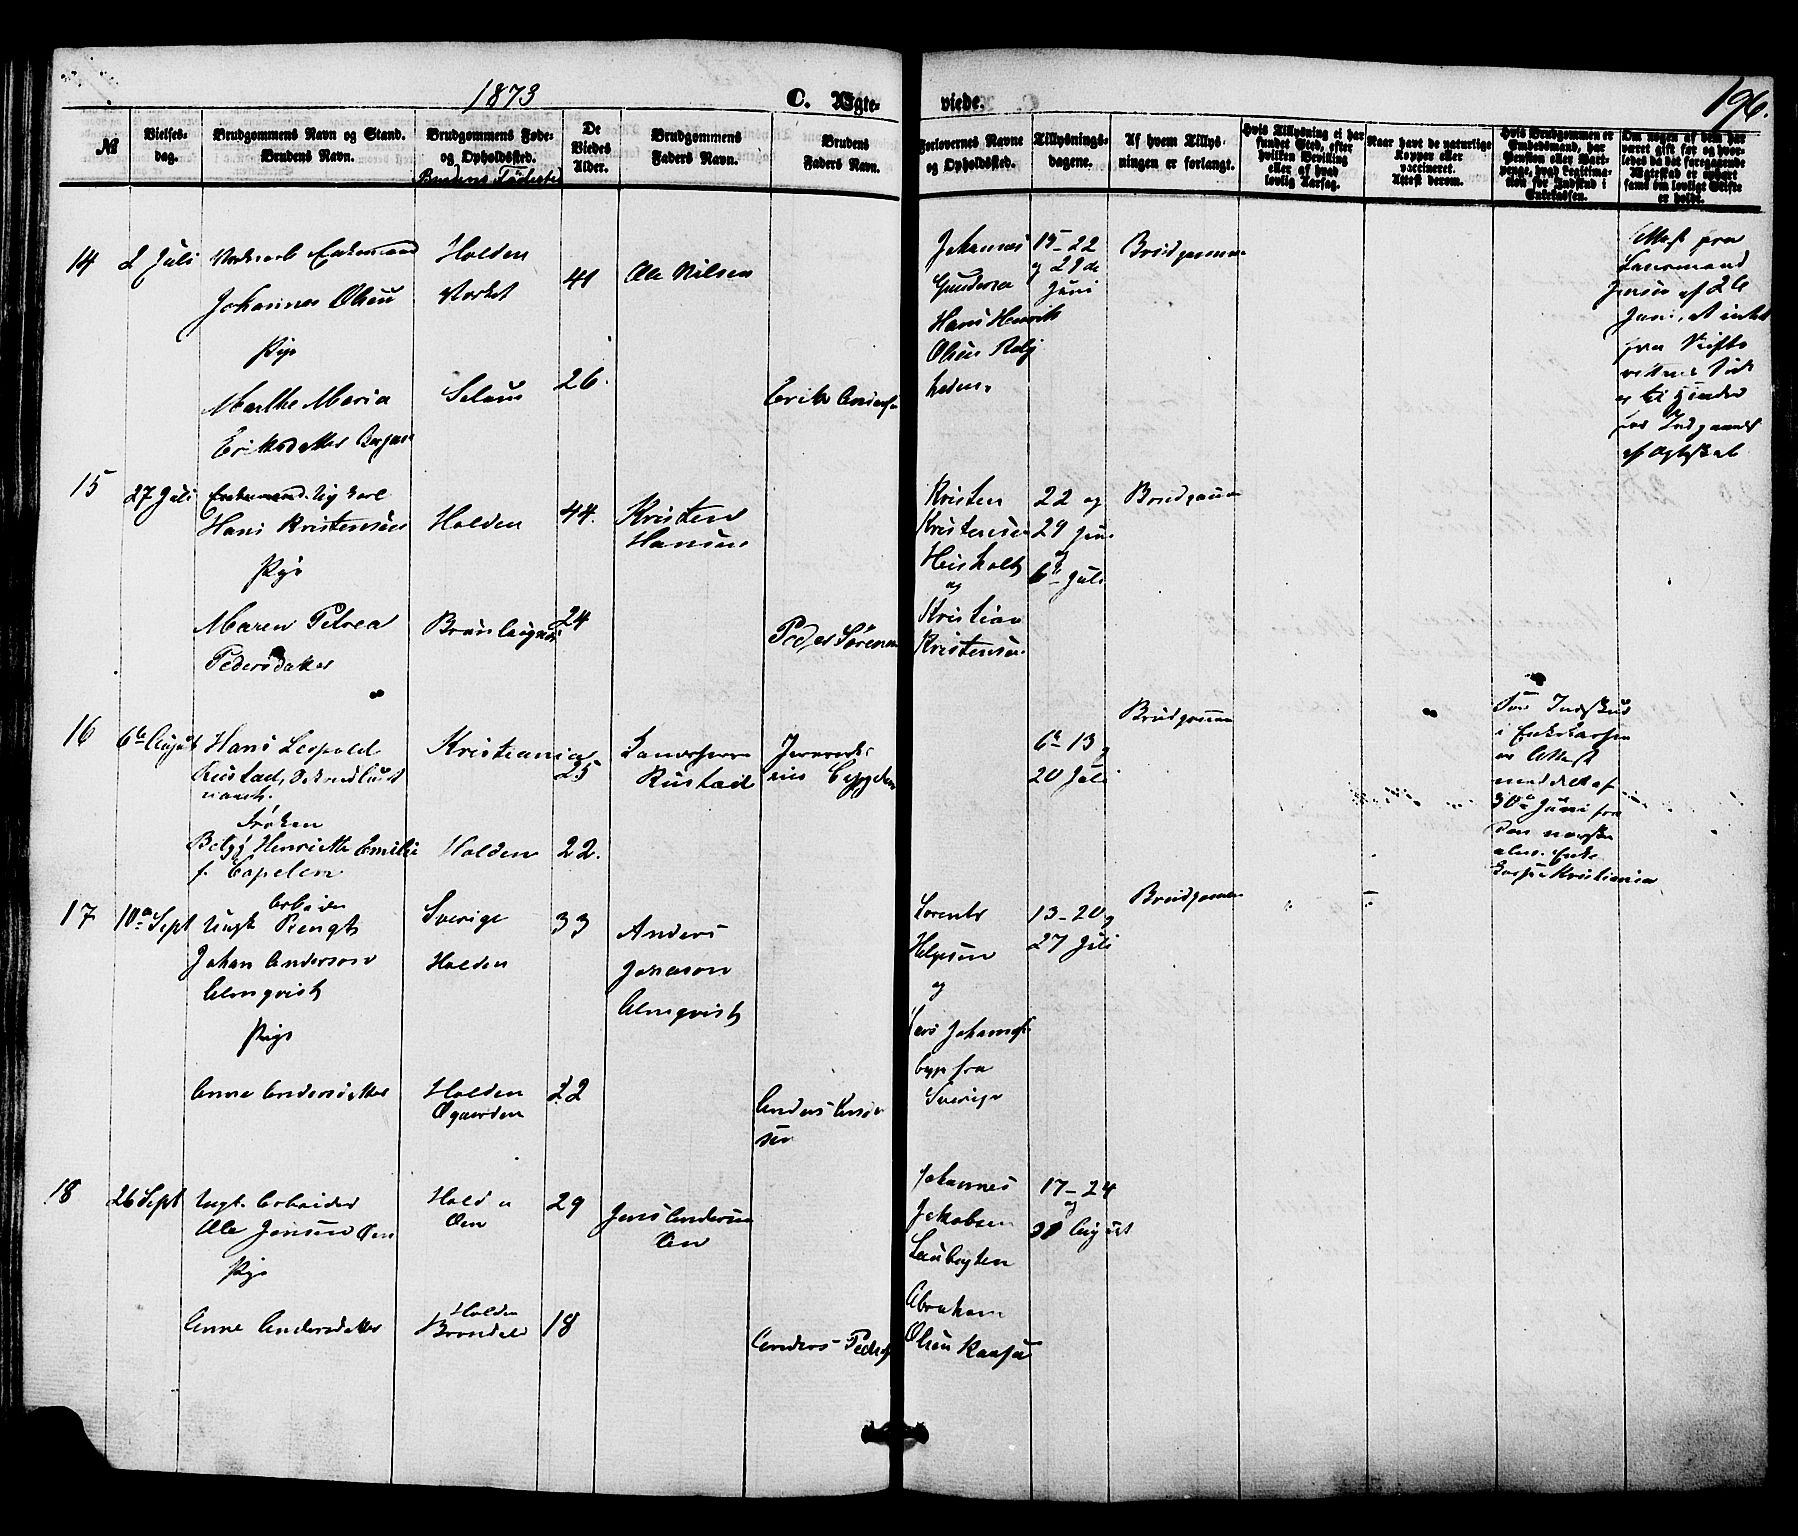 1873
C. Ægte-
viede.
196.
№
Vielses-
dag.
Brudgommens Navn og Stand.
Brudens Navn.
Brudgommens Føde-
og Opholdssted.
Brudens Födested
De
Viedes
Alder.
Brudgommens
Faders Navn.
Brudens
Faders Navn.
Forlovernes Navne
og Opholdssted.
Tillysnings-
dagene.
Af hvem Tillys-
ningen er forlangt.
Hvis Tillysning ei har
fundet Sted, efter
hvilken Bevilling
eller af hvad
lovlig Aarsag.
Naar havt de naturlige
Kopper eller
vaccineret.
Attest derom.
Hvis Brudgommen er
Embedsmand, har
Pension eller Vart-
penge, hvad Legitima-
tion for Indskud i
Enkekassen.
Om nogen af dem har
været gift før og hvor-
ledes da det foregaaende
Ægteskab er ophørt
samt om lovligt Skifte
er holdt.
14
2 Juli
Enkemand
Johannes Olsen
Pige
Marthe Maria
Eriksdatter
Holden
Værket
Solum
41
26.
Ole Nilsen
Erik
Johannes
Gundersen
Hans Henrik
Olsen
15-22
og 29de
Juni
Brudgommen
Attest fra
Lensmand
Jensen af 26
Juni, at intet
fra Skifte
rettens Side
er til Hinder
for Indgaaelse
af Ægteskab
15
27 Juli
Enkemand
Hans Kristensen
Pige
Maren Petrea
Pedersdatter
Holden
44.
24
Kristen
Hansen
Peder Sörensen
Kristen
Kristensen
Heisholt
og
Kristian
Kristensen
22 og
29 Juni
og
6te Juli
Brudgommen
16
6te August
Hans Leopold
Rustad,
Fröken
Betzy Henriette Emilie
f. Capelen
Kristiania
Holden
25
22.
Rustad
Cappelen
6te 13 og
20 Juli
Brudgommen
For Indskud
i Enkekassen
er Attest
meddelt af
30te Juni fra
den norske
alm. Enke
kasse Kristiania
17
10de Sept
Arbeider
Ungk. Bengt
Johan Anderson
Almqvist
Pige
Anne Andersdatter
Sverige
Holden
Holden
Øgaarden
33
22
Anders
Jonason
Almqvist
Anders
sen
Lorents
Helgesen
og
Lars
fra
Sverige
13-20 og
27 Juli
Brudgommen
18
26 Sept
Ungk. Arbeider
Ole Jensen Øen
Pige
Anne Andersdatter
Holden
Øen
Holden
29
18
Jens Andersen
Øen
Anders Peders
Johannes
Jakobsen
Abraham
Olsen Kaasa
17-24
og
31 August